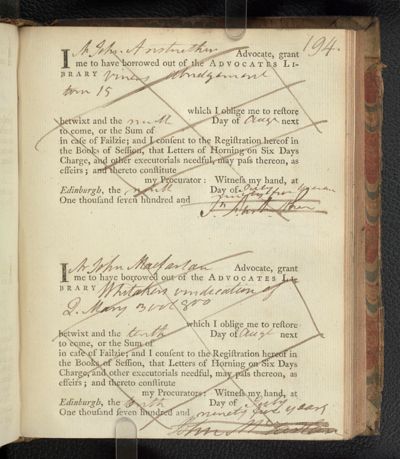 194.
I Mr John Anstruther Advocate, grant
me to have borrowed out of the ADVOCATES LI-
BRARY Viners Abridgement
tom 15
which I oblige me to reſtore
betwixt and the ninth Day of Augt next
to come, or the Sum of
in caſe of Failzie; and I conſent to the Regiſtration hereof in
the Books of Seſſion, that Letters of Horning on Six Days
Charge, and other executorials needful, may paſs thereon, as
effeirs; and thereto conſtitute
my Procurator: Witneſs my hand, at
Edinburgh, the ninth Day of July
One thouſand ſeven hundred and ninety five years
Jn Anstruther
I Mr John Macfarlan Advocate, grant
me to have borrowed out of the ADVOCATES LI-
BRARY Whitakers vindication of
Q. Mary 3 vol 8vo
which I oblige me to reſtore
betwixt and the tenth Day of Augt next
to come, or the Sum of
in caſe of Failzie; and I conſent to the Regiſtration hereof in
the Books of Seſſion, that Letters of Horning on Six Days
Charge, and other executorials needful, may paſs thereon, as
effeirs; and thereto conſtitute
my Procurator: Witneſs my hand, at
Edinburgh, the tenth Day of July
One thouſand ſeven hundred and ninety five years
John Macfarlan